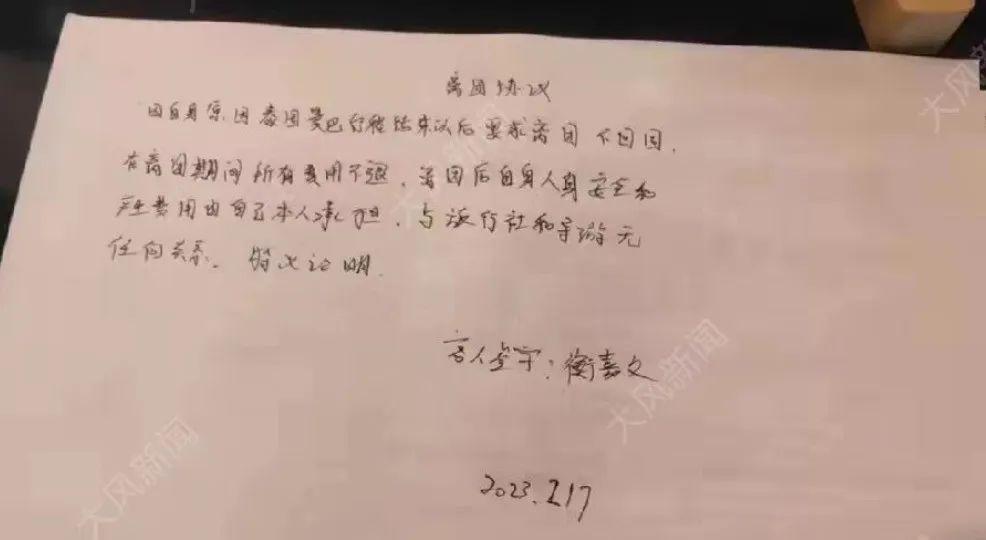 离团协议
因自身原因泰国曼巴行程结束以后要求离团不回国.
在离团期间所有费用不退.离团后自身人身安全和
产生费用由自己本人承担.与旅行社和导游无
任何关系.特此证明.
客人签字:衡嘉文
2023.2.17
大风新闻
大风新闻
大风新闻
大风新闻